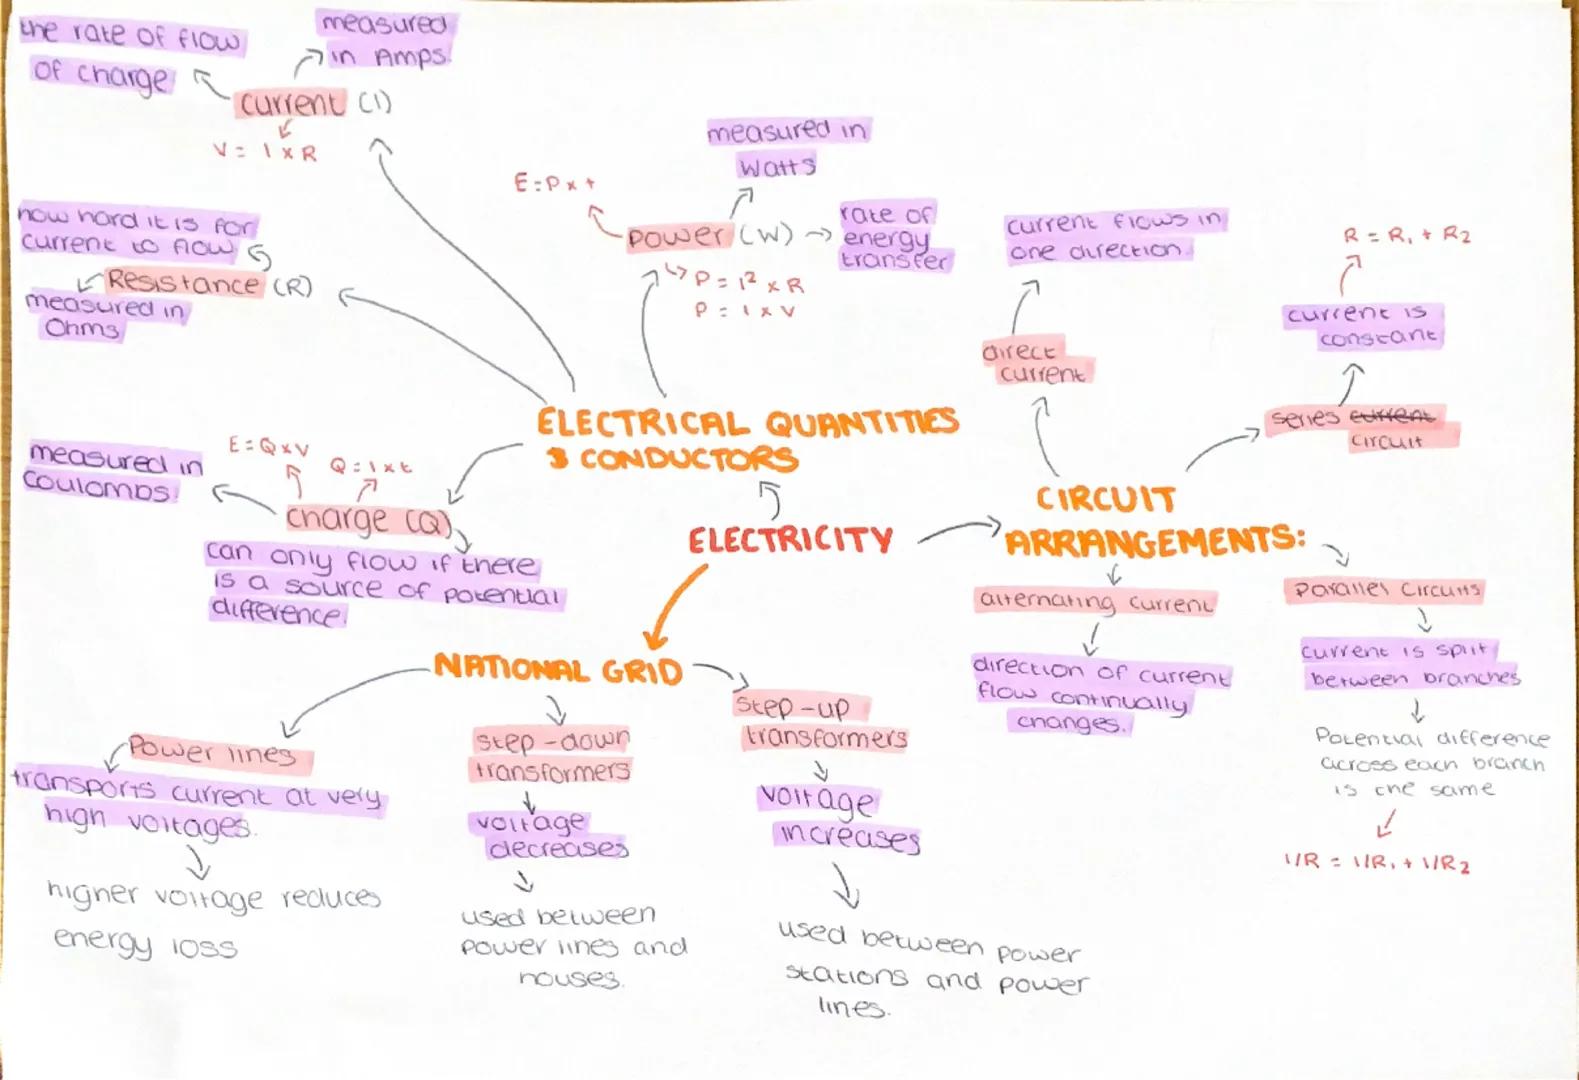 the rate of flow
of charge
measured
in Amps.
current (I)
V = I x R
how hard it is for
current to flow
Resistance (R)
measured in
Ohms
E = P x t
measured in
Watts
power (W)
rate of
energy
transfer
P = I² x R
P = I x V
ELECTRICAL QUANTITIES
& CONDUCTORS
measured in
coulombs.
E = Q x V
Q = I x t
charge (Q)
can only flow if there
is a source of potential
difference.
ELECTRICITY
current flows in
one direction.
direct
current
R = R₁ + R₂
current is
constant
series current
circuit
CIRCUIT
ARRANGEMENTS:
alternating current
direction of current
flow continually
changes.
parallel circuits
current is split
between branches
Potential difference
across each branch
is the same
1/R = 1/R₁ + 1/R₂
NATIONAL GRID
Power lines
transports current at very
high voltages.
higher voltage reduces
energy loss
step-down
transformers
voltage
decreases
used between
power lines and
houses.
step-up
transformers
voltage
increases
used between power
stations and power
lines.